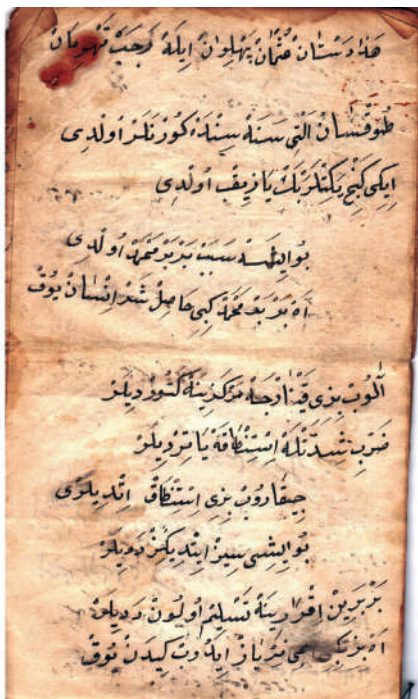 هذا دستان عثمان پهلوان ايله رجب قهرمان
طوقسان التى سنه سنده كورنلر اولدى
ايكى كنج يكتلره پك يازيق اولدى
بو ايشه سبب بربر محمد اولدى
اه بربر محمد كبى حاصل شر انسان يوق
آلوب بزى قينارجه مركزينه كتورديلر
ضرب شدتله استنطاقه ياترديلر
چيقاروب بزى استنطاق اتديلرى
بو ايشى سيز ايتديكز ديديلر
بربرين اقرارينه تسليم اولون ديديلر